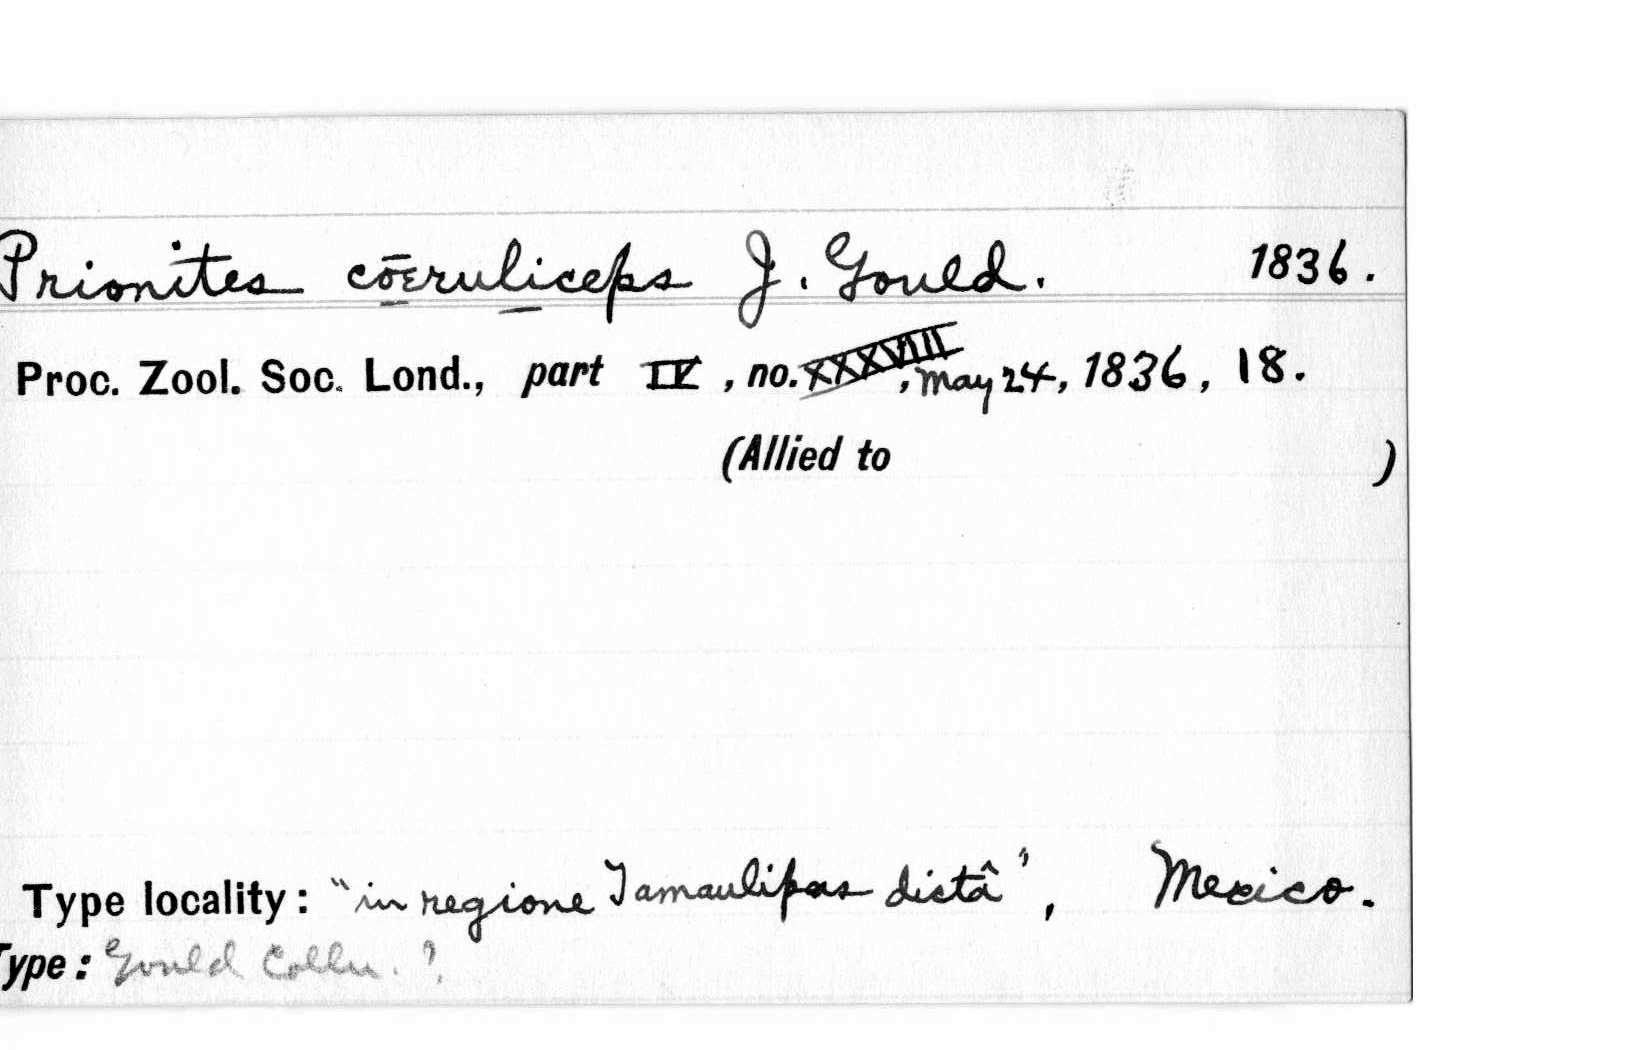 Prionites cōeruliceps J. Gould. 1836.
Proc. Zool. Soc. Lond., part IV, no. XXXVIII, May 24, 1836, 18.
(Allied to )
Type locality: "in regione Tamaulipas dictâ", Mexico.
Type: Gould Colln. ?